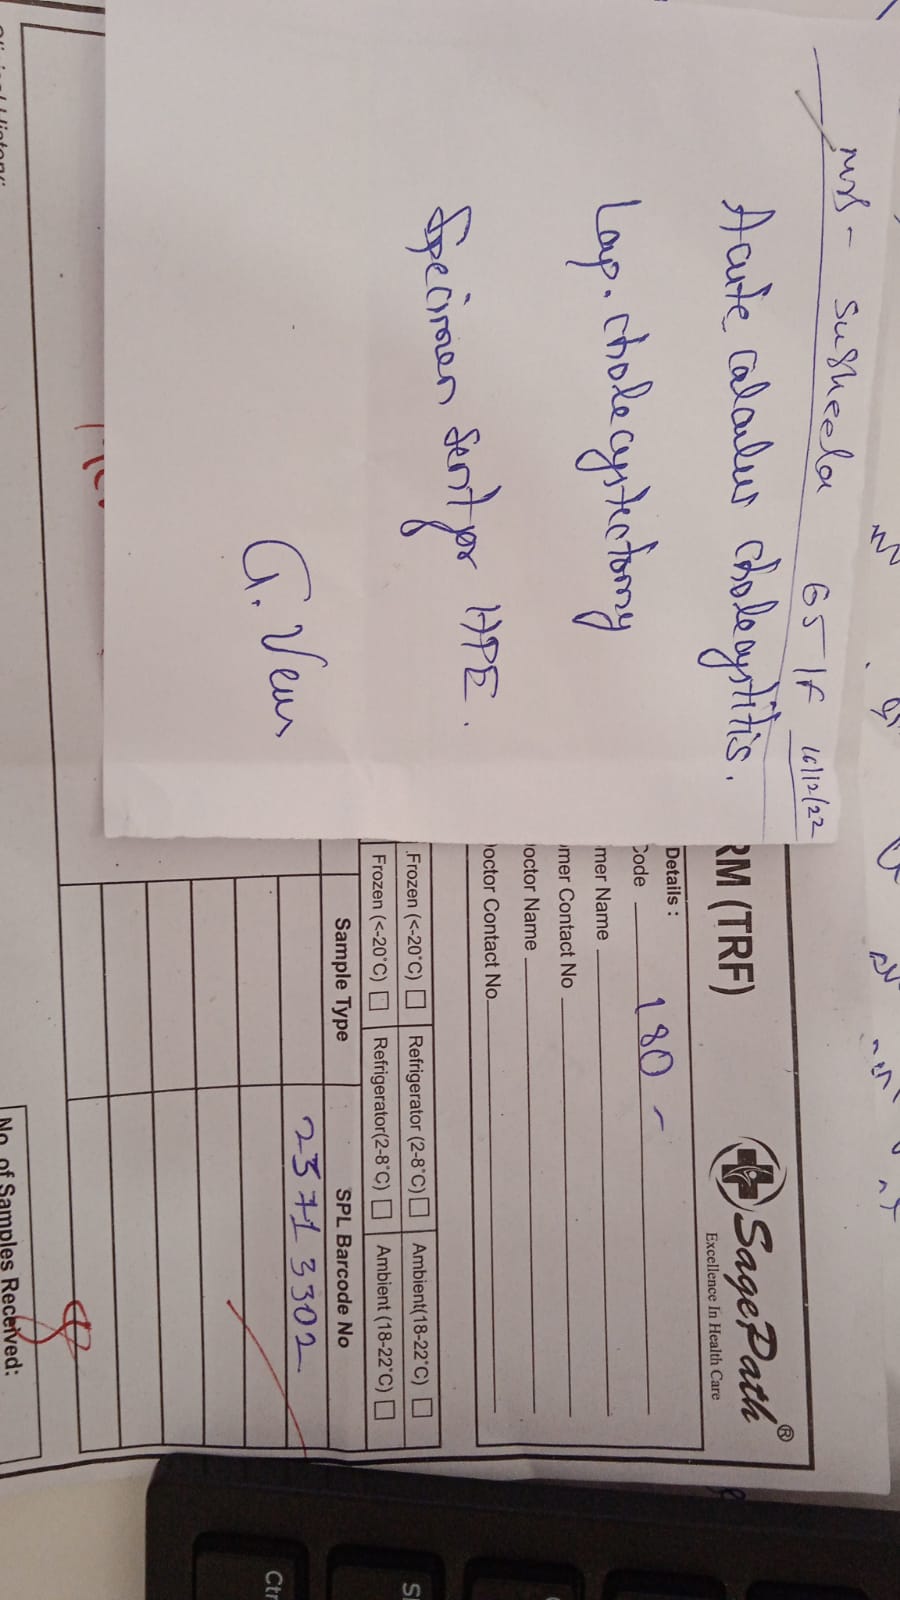 Mrs - Susheela 65/F 16/12/22
Acute calculus cholecystitis.
Lap. cholecystectomy
Specimen sent for HPE.
RM (TRF)
SagePath®
Excellence In Health Care
Details :
Code 180 -
mer Name
mer Contact No
octor Name
octor Contact No
Frozen (<-20°C) Refrigerator (2-8°C) Ambient(18-22°C)
Frozen (<-20°C) Refrigerator(2-8°C) Ambient (18-22°C)
Sample Type SPL Barcode No
23713302
No. of Samples Received:
Clinical History
G. Venu
Ctr